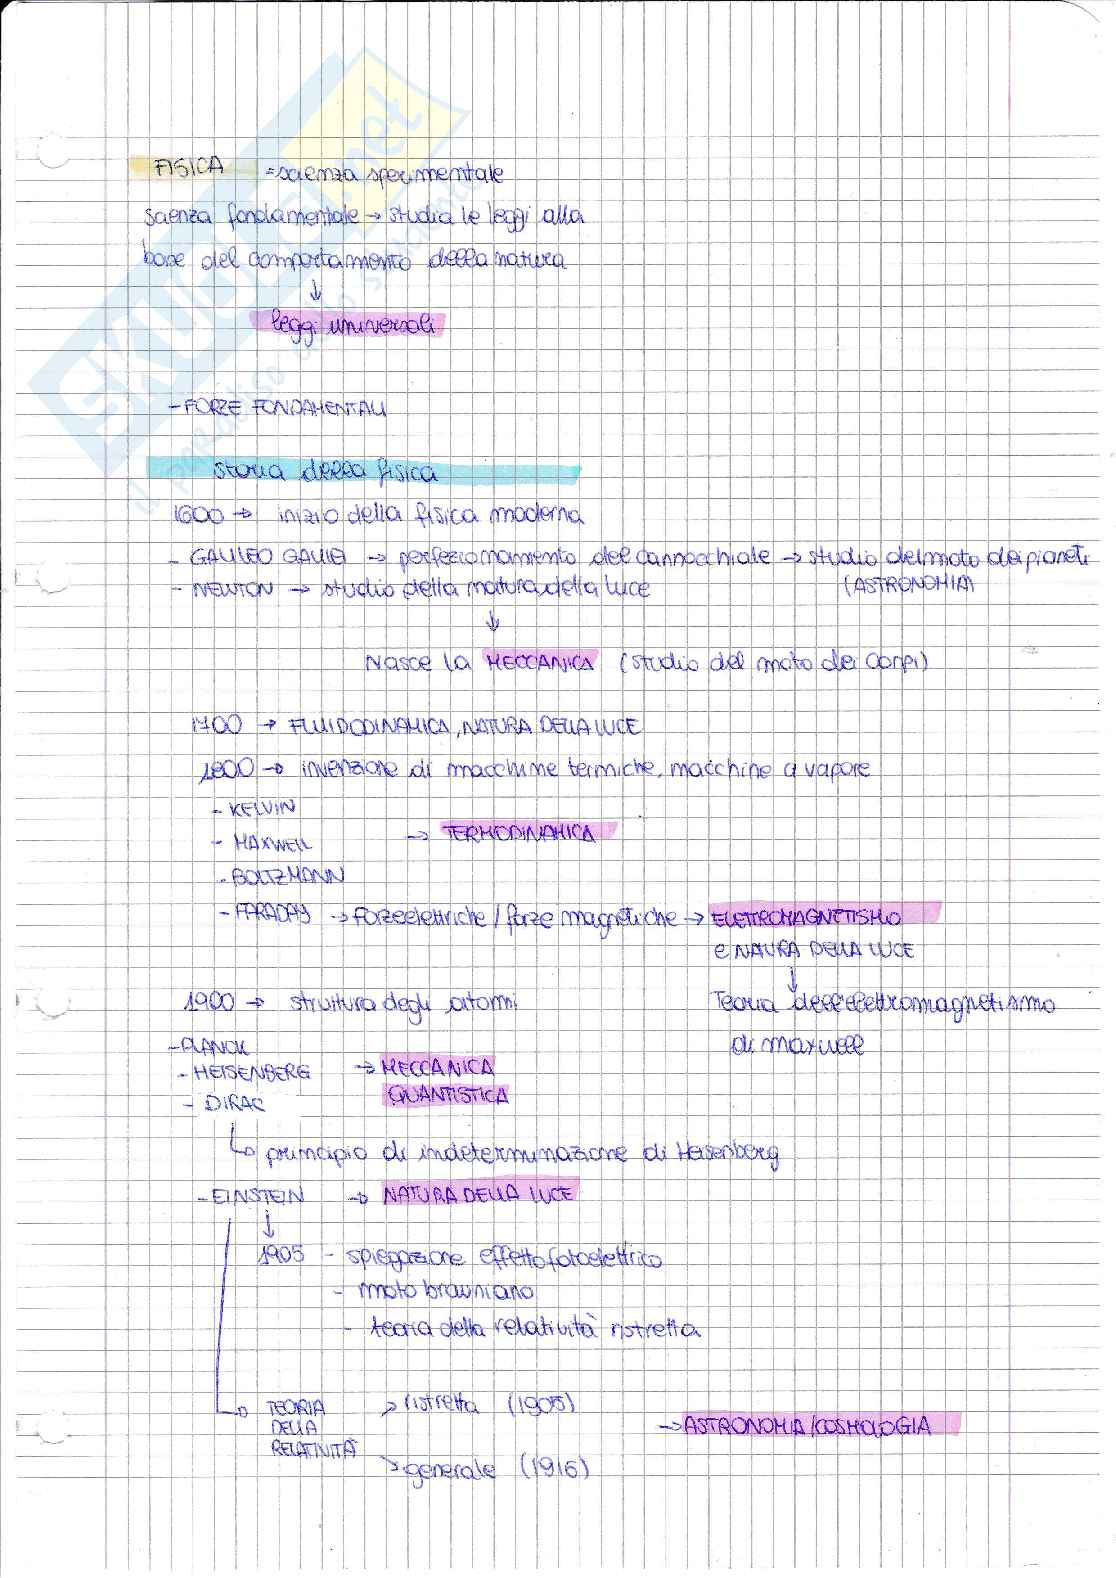 FISICA = scienza sperimentale
scienza fondamentale → studia le leggi alla
base del comportamento della natura
↓
leggi universali
- FORZE FONDAMENTALI
storia della fisica
1600 → inizio della fisica moderna
- GALILEO GALILEI → perfezionamento del cannocchiale → studio del moto dei pianeti
(ASTRONOMIA)
- NEWTON → studio della natura della luce
↓
Nasce la MECCANICA (studio del moto dei corpi)
1700 → FLUIDODINAMICA, NATURA DELLA LUCE
1800 → invenzione di macchine termiche, macchine a vapore
- KELVIN
- MAXWELL → TERMODINAMICA
- BOLTZMANN
- FARADAY → forze elettriche / forze magnetiche → ELETTROMAGNETISMO
e NAURA DELLA LUCE
↓
Teoria dell'elettromagnetismo
di maxwell
1900 → struttura degli atomi
- PLANCK
- HEISENBERG → MECCANICA
QUANTISTICA
- DIRAC
↳ principio di indeterminazione di Heisenberg
- EINSTEIN → NATURA DELLA LUCE
↓
1905 - spiegazione effetto fotoelettrico
- moto browniano
- teoria della relatività ristretta
→ TEORIA DELLA RELATIVITÀ
→ ristretta (1905)
→ generale (1916)
→ ASTRONOMIA/COSMOLOGIA
SKUOLA.net
il paradiso dello studente